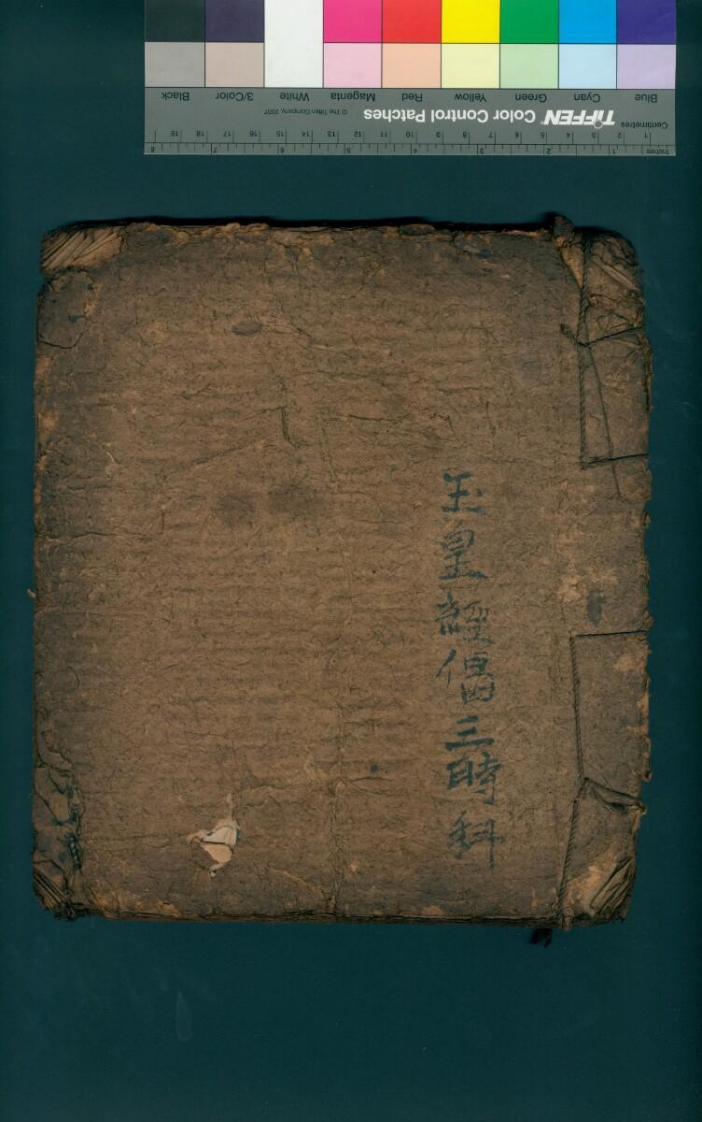 Blue Cyan Green Yellow Red Magenta White 3/Color Black
TIFFEN Color Control Patches © The Tiffen Company, 2007
Centimetres
1 2 3 4 5 6 7 8 9 10 11 12 13 14 15 16 17 18 19
Inches 1 2 3 4 5 6 7 8
玉皇經俻三時科